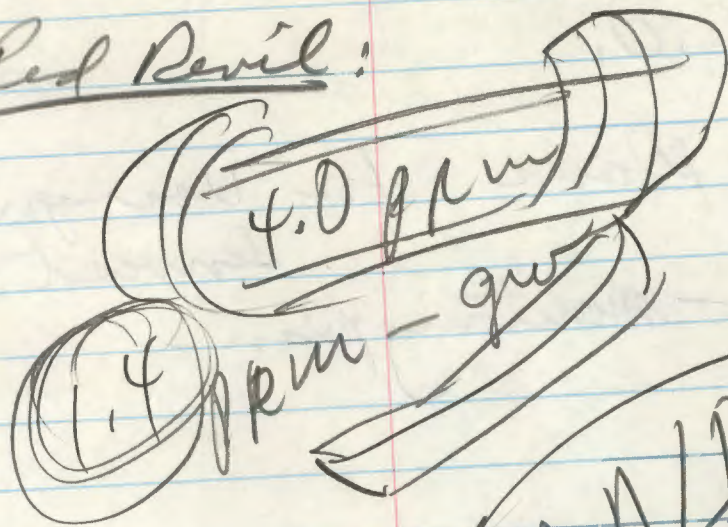 Red Devil:
4.0 ppm
1.4 ppm - gw